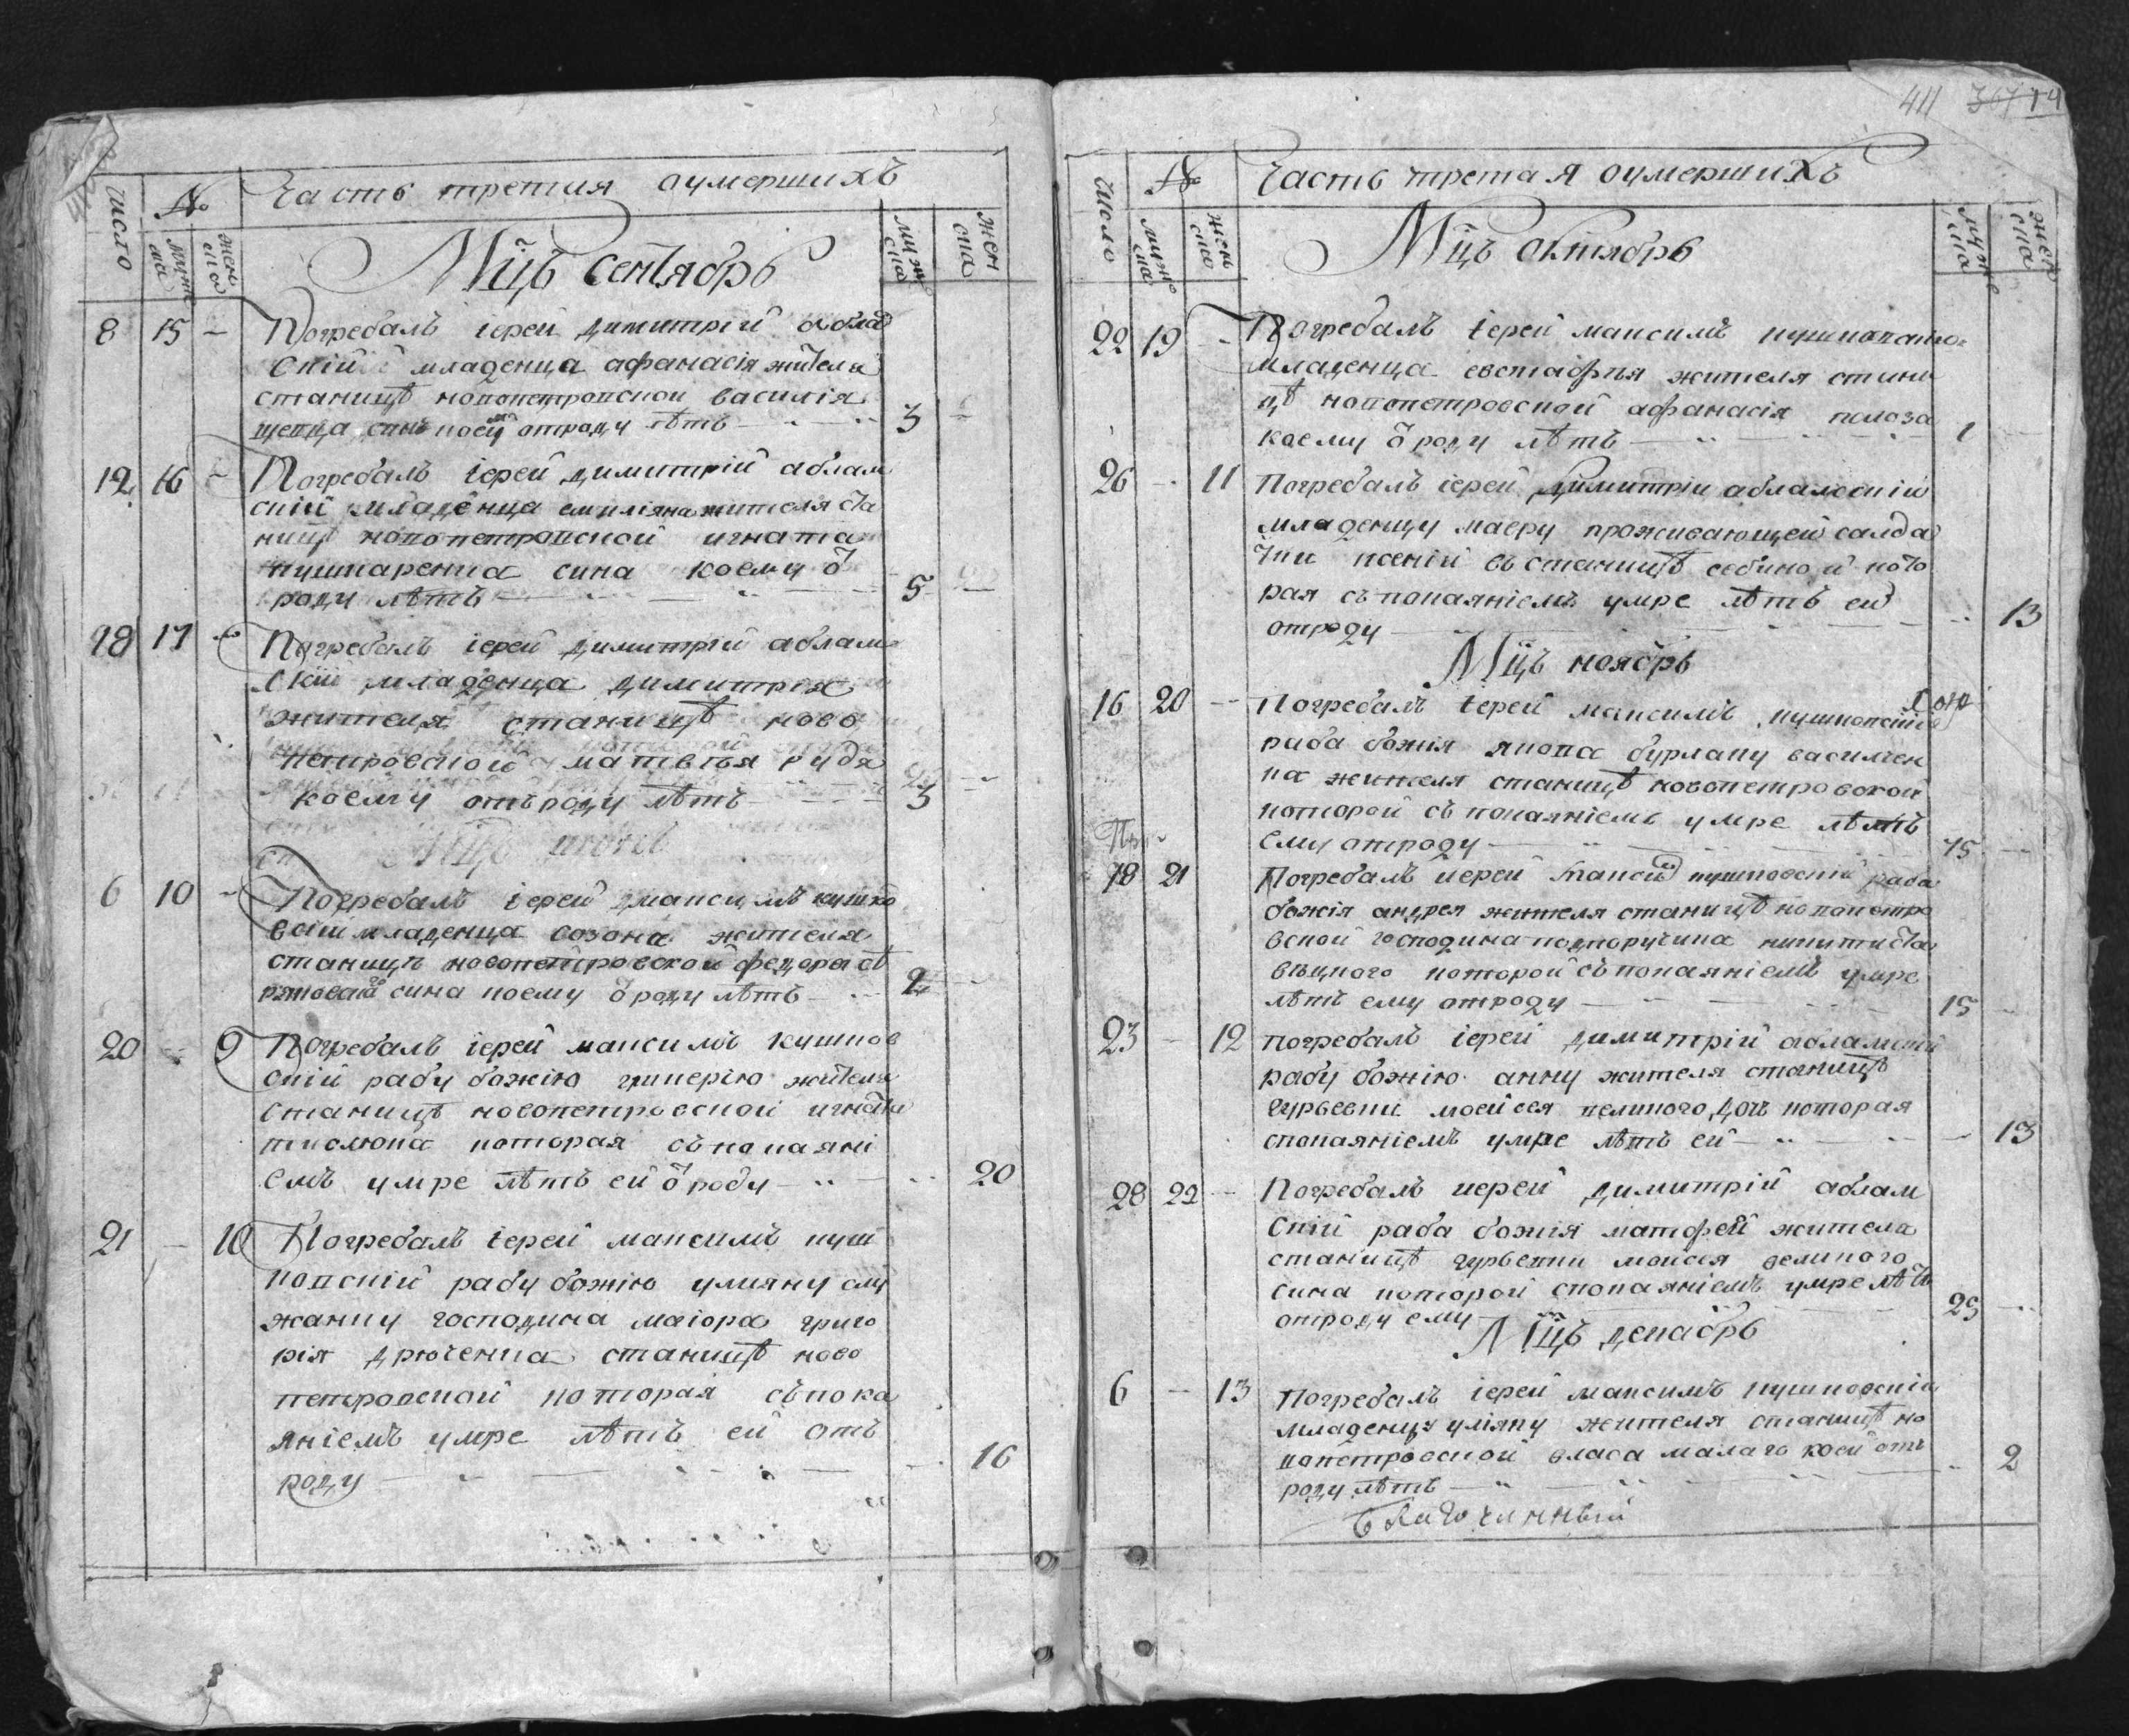 Часть третия оумершихъ
число
№
мужеска
женска
Мцъ сентябрь
муж ска
жен ска
8 15 – Погребалъ іерей димитрій аблам
скій младенца афанасія жителя
станицѣ новопетровской василія
отроду лѣтъ 3
12 16 – Погребалъ іерей димитрій аблам
скій младенца емиліяна жителя ста
ницѣ новопетровской игната
кушнаренка сина коему ѿ
роду лѣтъ 5
18 17 Погребалъ іерей димитрій аблам
скій младенца димитрія
жителя станицѣ ново
петровской матвѣя рудя
коему отъ роду лѣтъ 3
6 10 – Погребалъ іерей максимъ кушко
вскій младенца созона жителя
станицѣ новопетровской федора
сина коему ѿ роду лѣтъ 2
20 – 9 Погребалъ іерей максимъ кушков
скій рабу божію гликерію жителя
станицѣ новопетровской игната
тислюка которая съ покаяні
емъ умре лѣтъ ей ѿ роду 20
21 – 10 Погребалъ іерей максимъ куш
ковскій рабу божію улияну слу
жанку господина маіора григо
рія дрюченка станицѣ ново
петровской которая съ пока
яніемъ умре лѣтъ ей отъ
роду 16
411 367 14
Часть третая оумершихъ
число
№
мужска
женска
Мцъ октябрь
мужска
женска
22 19 – Погребалъ іерей максимъ кушковско
младенца евстафья жителя стани
цѣ новопетровской афанасія полоза
коему ѿ роду лѣтъ 1
26 – 11 Погребалъ іерей димитрій абламскій
младенцу мавру проживающей салда
тки ксеніи въ станицѣ собиной кото
рая съ покаяніемъ умре лѣтъ ей
отроду 13
Мцъ ноябрь
16 20 – Погребалъ іерей максимъ кушковскій
раба божія якова бурлаку василен
ка жителя станицѣ новопетровской
которой съ покаяніемъ умре лѣтъ
ему отроду 75
18 21 Погребалъ иерей максим кушковскій раба
божія андрея жителя станицѣ новопетро
вской господина подпоручика никити ста
вецкого которой съ покаяніемъ умре
лѣтъ ему отроду 15
23 – 12 погребалъ іерей димитрій абламскій
рабу божію анну жителя станицѣ
гурьевки моейсея великого дочъ которая
спокаяніемъ умре лѣтъ ей 13
28 22 – Погребалъ иерей димитрій аблам
скій раба божія матфей жителя
станицѣ гурьевки моисея великого
сина которой спокаяніемъ умре лѣтъ
отроду ему 29
Мцъ декабрь
6 – 13 Погребалъ іерей максимъ кушковскій
младенцу уліяну жителя станицѣ но
вопетровской власа малаго коей отъ
роду лѣтъ 2
благочинный